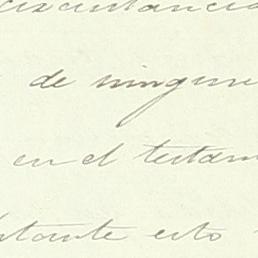 circunstancia
de ningun
en el testam
stante esto